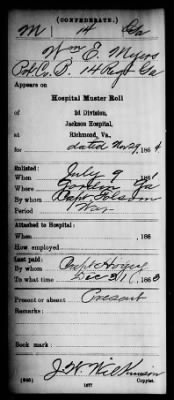 (CONFEDERATE.)
M 14 Ga
Wm E. Myers
Pvt. Co. B. 14 Regt Ga
Appears on
Hospital Muster Roll
2d Division,
Jackson Hospital,
Richmond, Va.,
for dated Nov 29, 1864
Enlisted:
When July 9, 1861
Where Ga
By whom Capt. Folsom
Period War
Attached to Hospital:
When , 186
How employed
Last paid:
By whom Capt
To what time Dec 31, 1863
Present or absent Present
Remarks:
Book mark:
J. W. Wilkinson
Copyist.